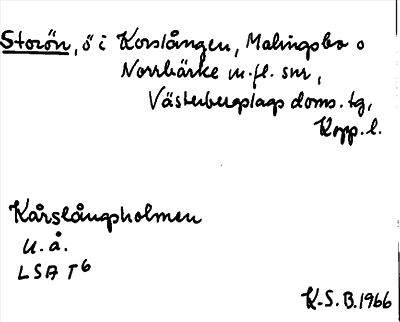 Storön, ö i Korslången, Malingsbo o
Norrbärke m.fl. snr,
Västerbergslags doms. tg,
Kopp. l.
Kårslångsholmen
u.å.
LSA T6
K-S.B.1966